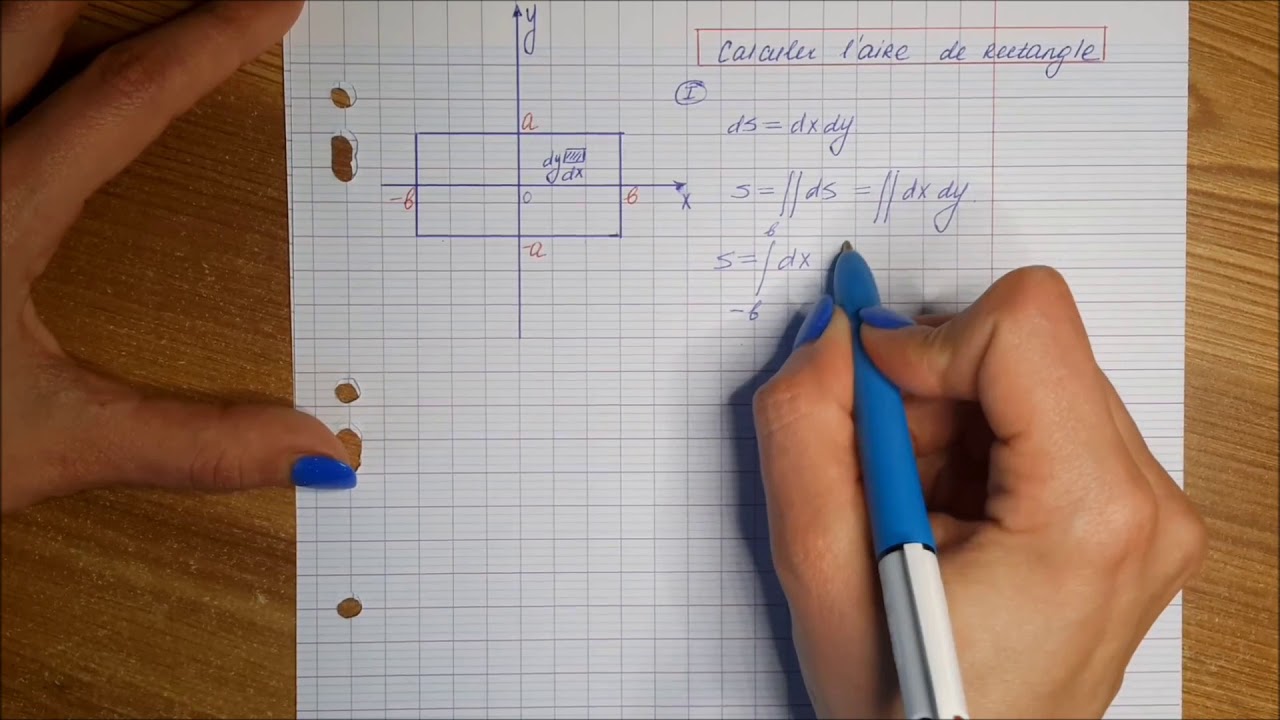 Calculer l'aire de rectangle
I
ds = dx dy
s = ∬ ds = ∬ dx dy.
b
s = ∫ dx
-b
y
a
dy
dx
-b 0 b x
-a